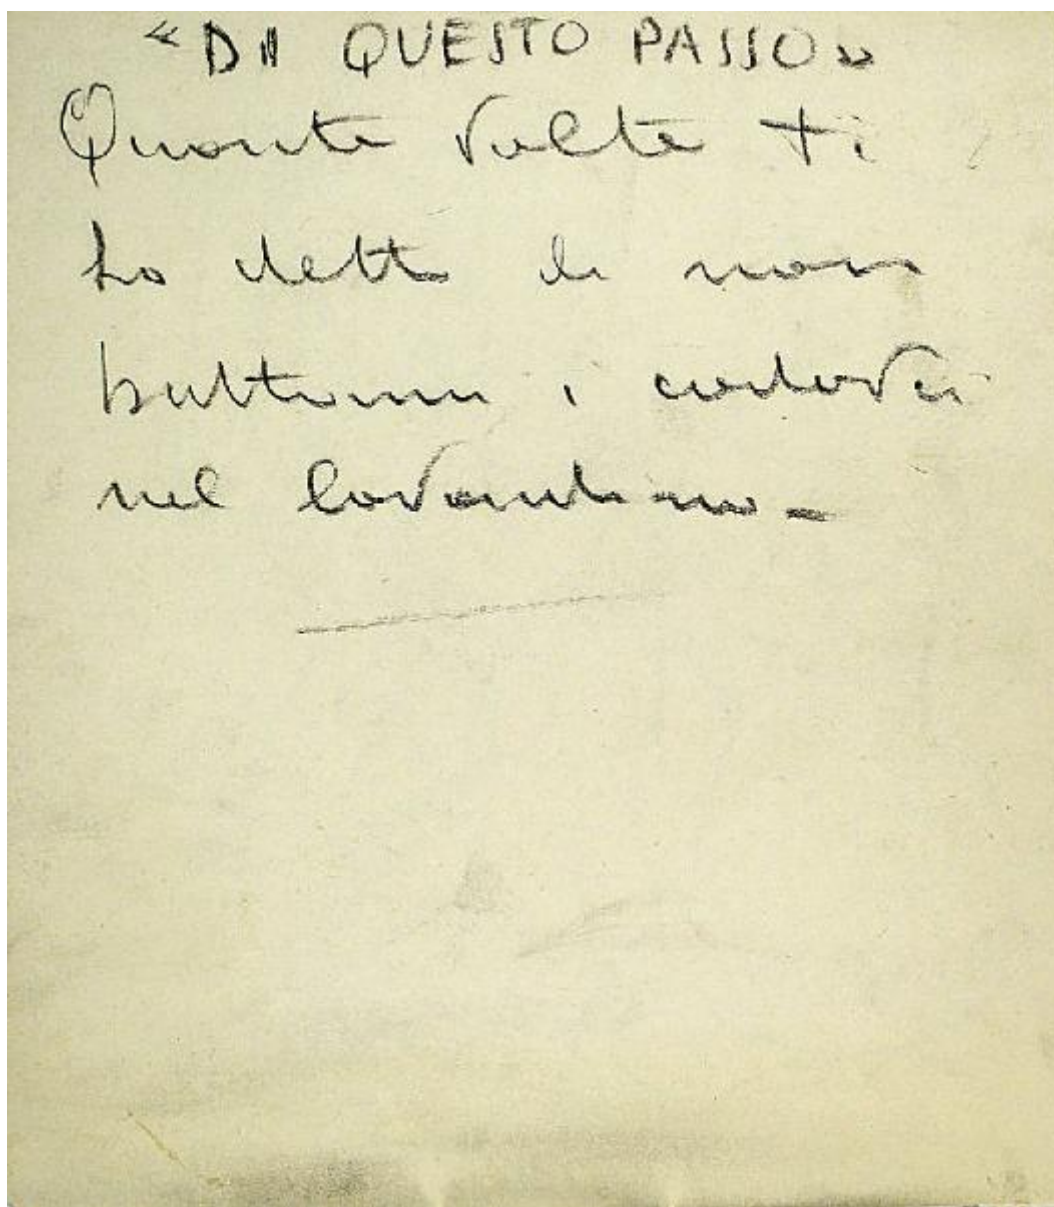 « DI QUESTO PASSO »
Quante volte ti
ho detto di non
buttarmi i cadaveri
nel lavandino –